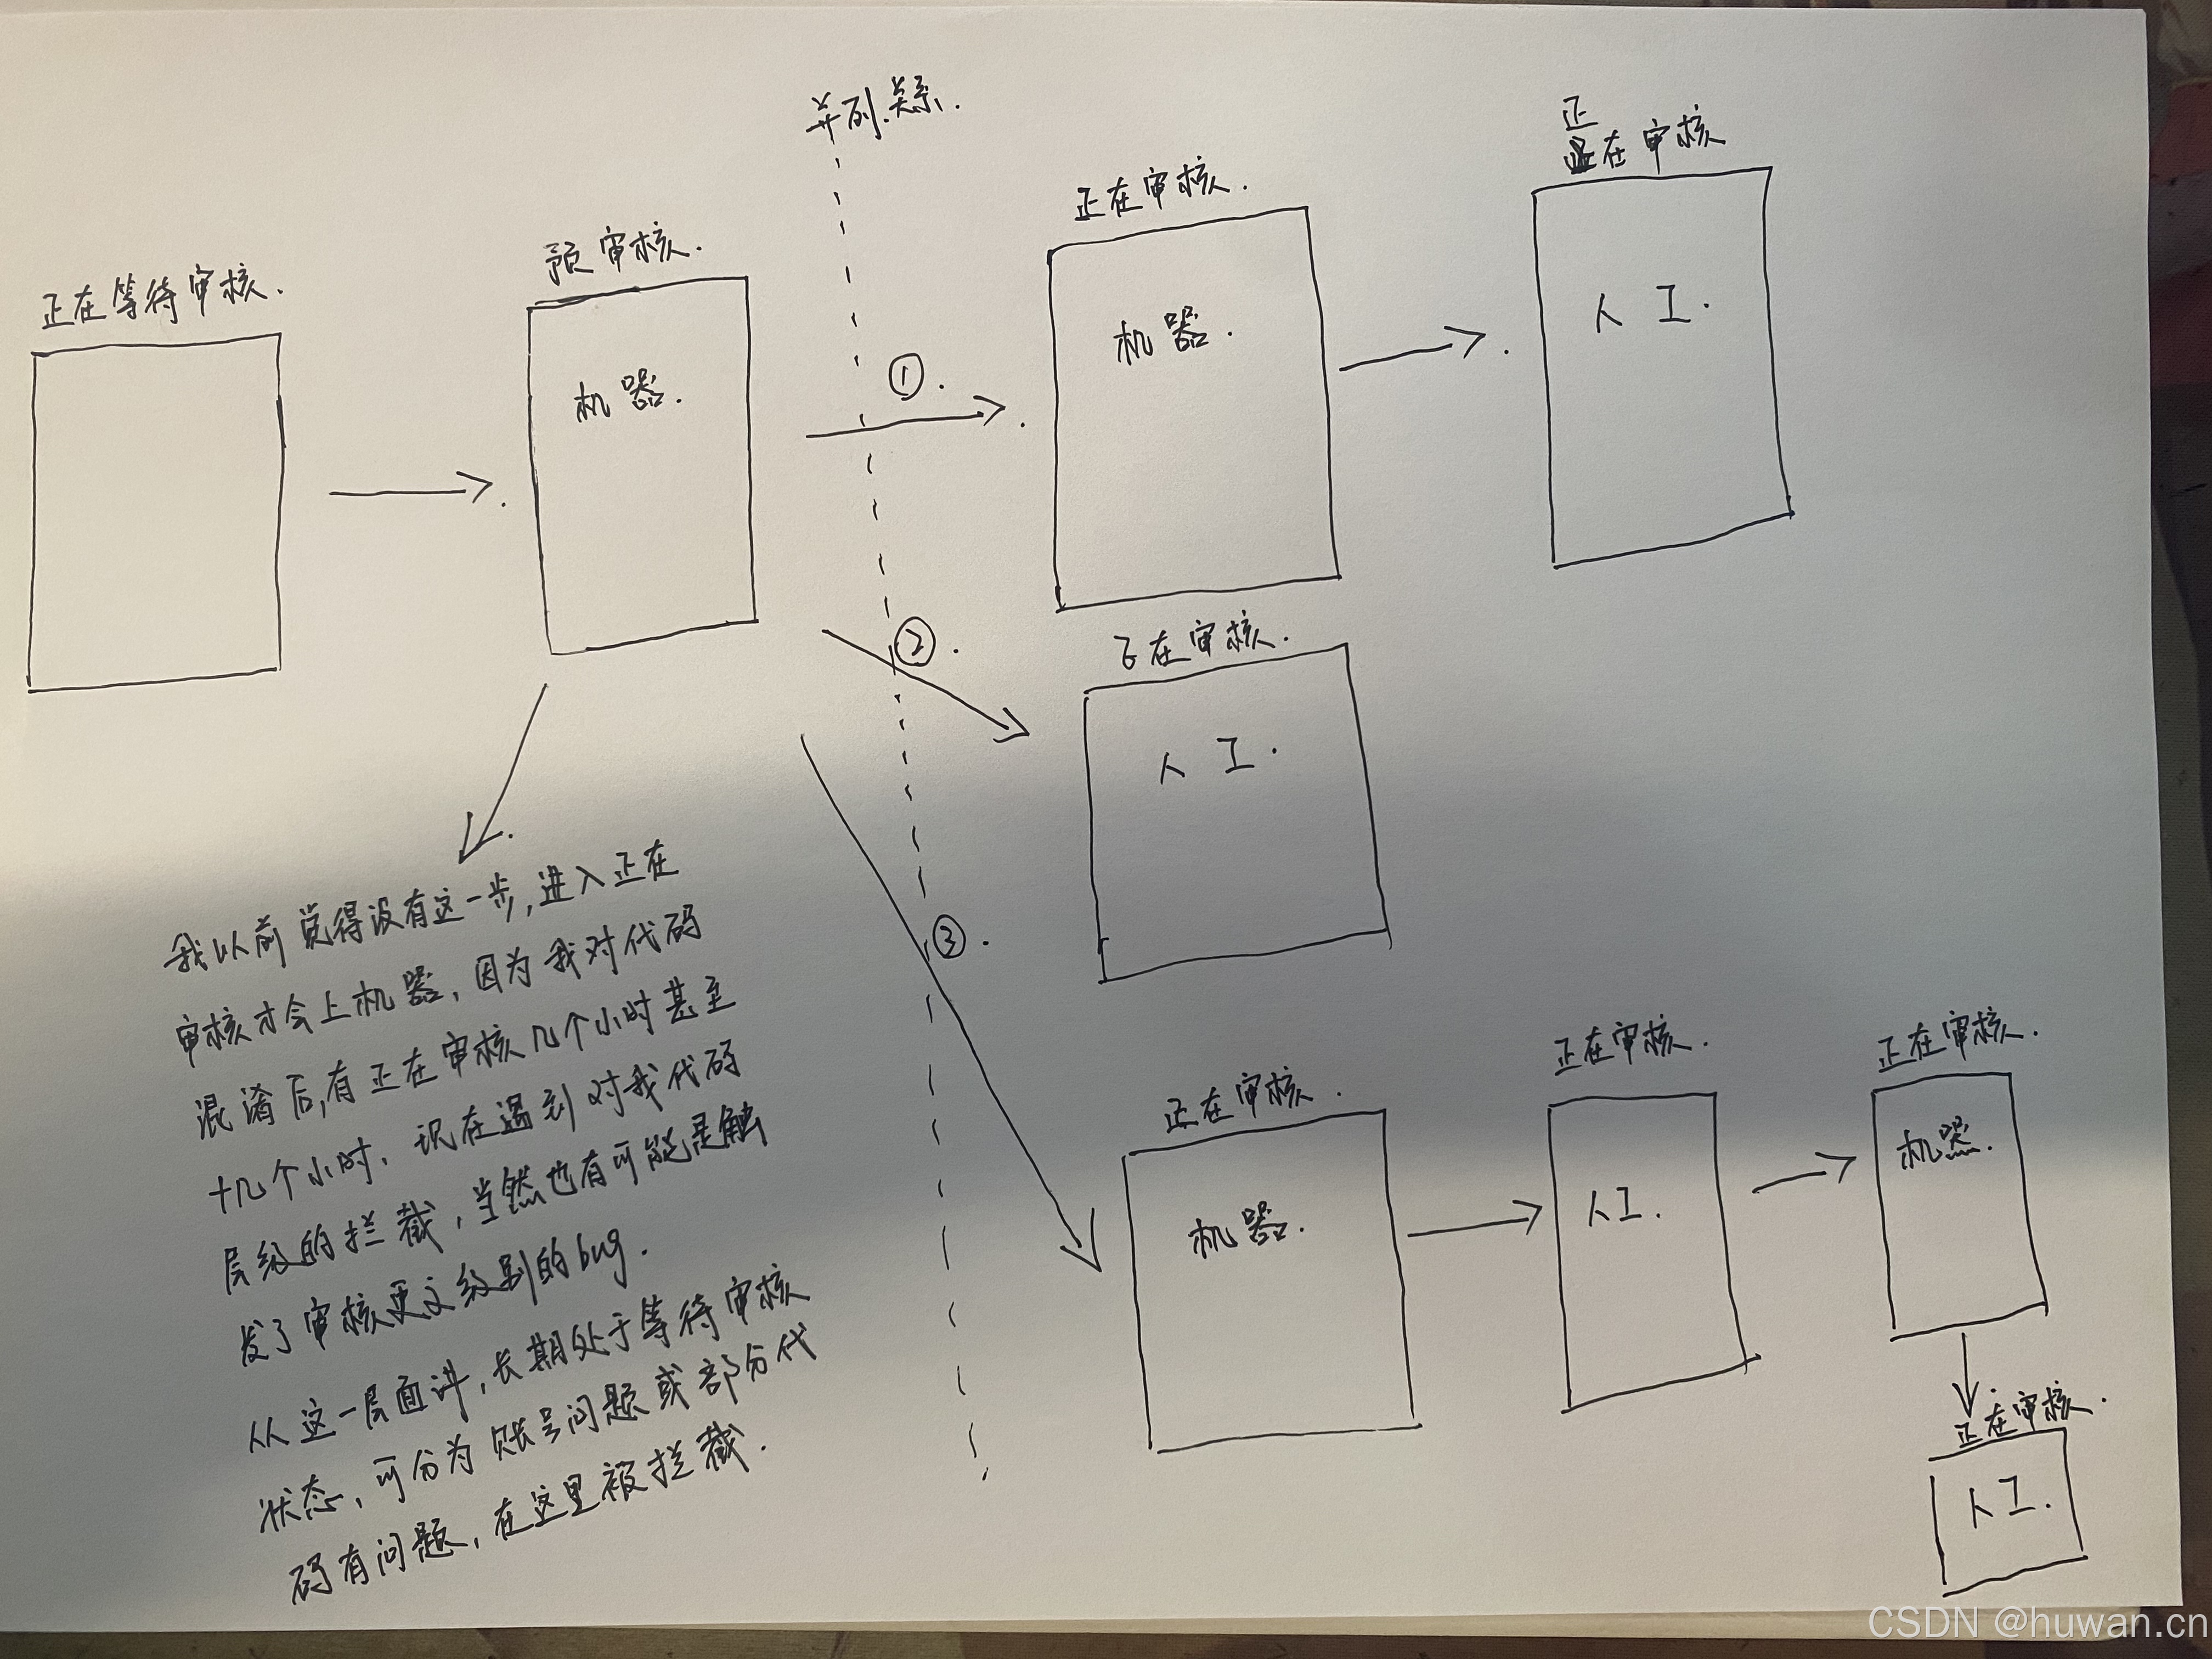 并列关系.
正
在审核
正在审核.
预审核.
正在等待审核.
人工.
机器.
机器.
①.
②.
正在审核.
人工.
我以前觉得没有这一步,进入正在
审核才会上机器,因为我对代码
混淆后,有正在审核几个小时甚至
十几个小时,现在遇到对我代码
层级的拦截,当然也有可能是触
发了审核更高级别的bug.
从这一层面讲,长期处于等待审核
状态,可分为账号问题或部分代
码有问题,在这里被拦截.
③.
正在审核.
机器.
正在审核.
人工.
正在审核.
机器.
正在审核.
人工.
CSDN @huwan.cn